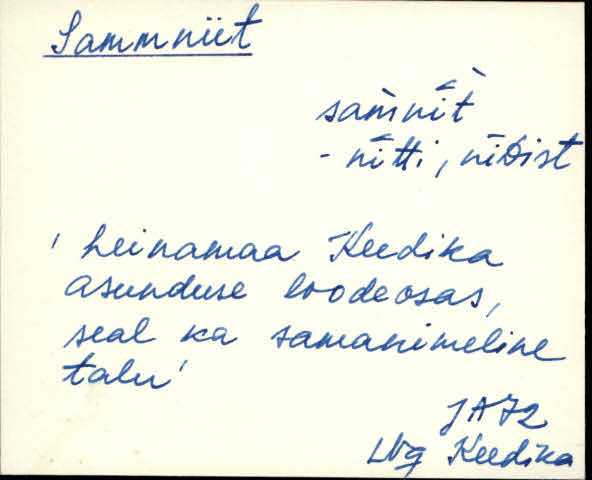 Sammniit
sam̀ni̬t̀
- nitti, niDist
' heinamaa Keedika
asunduse loodeosas,
seal ka samanimeline
talu'
JA72
LNg Keedika